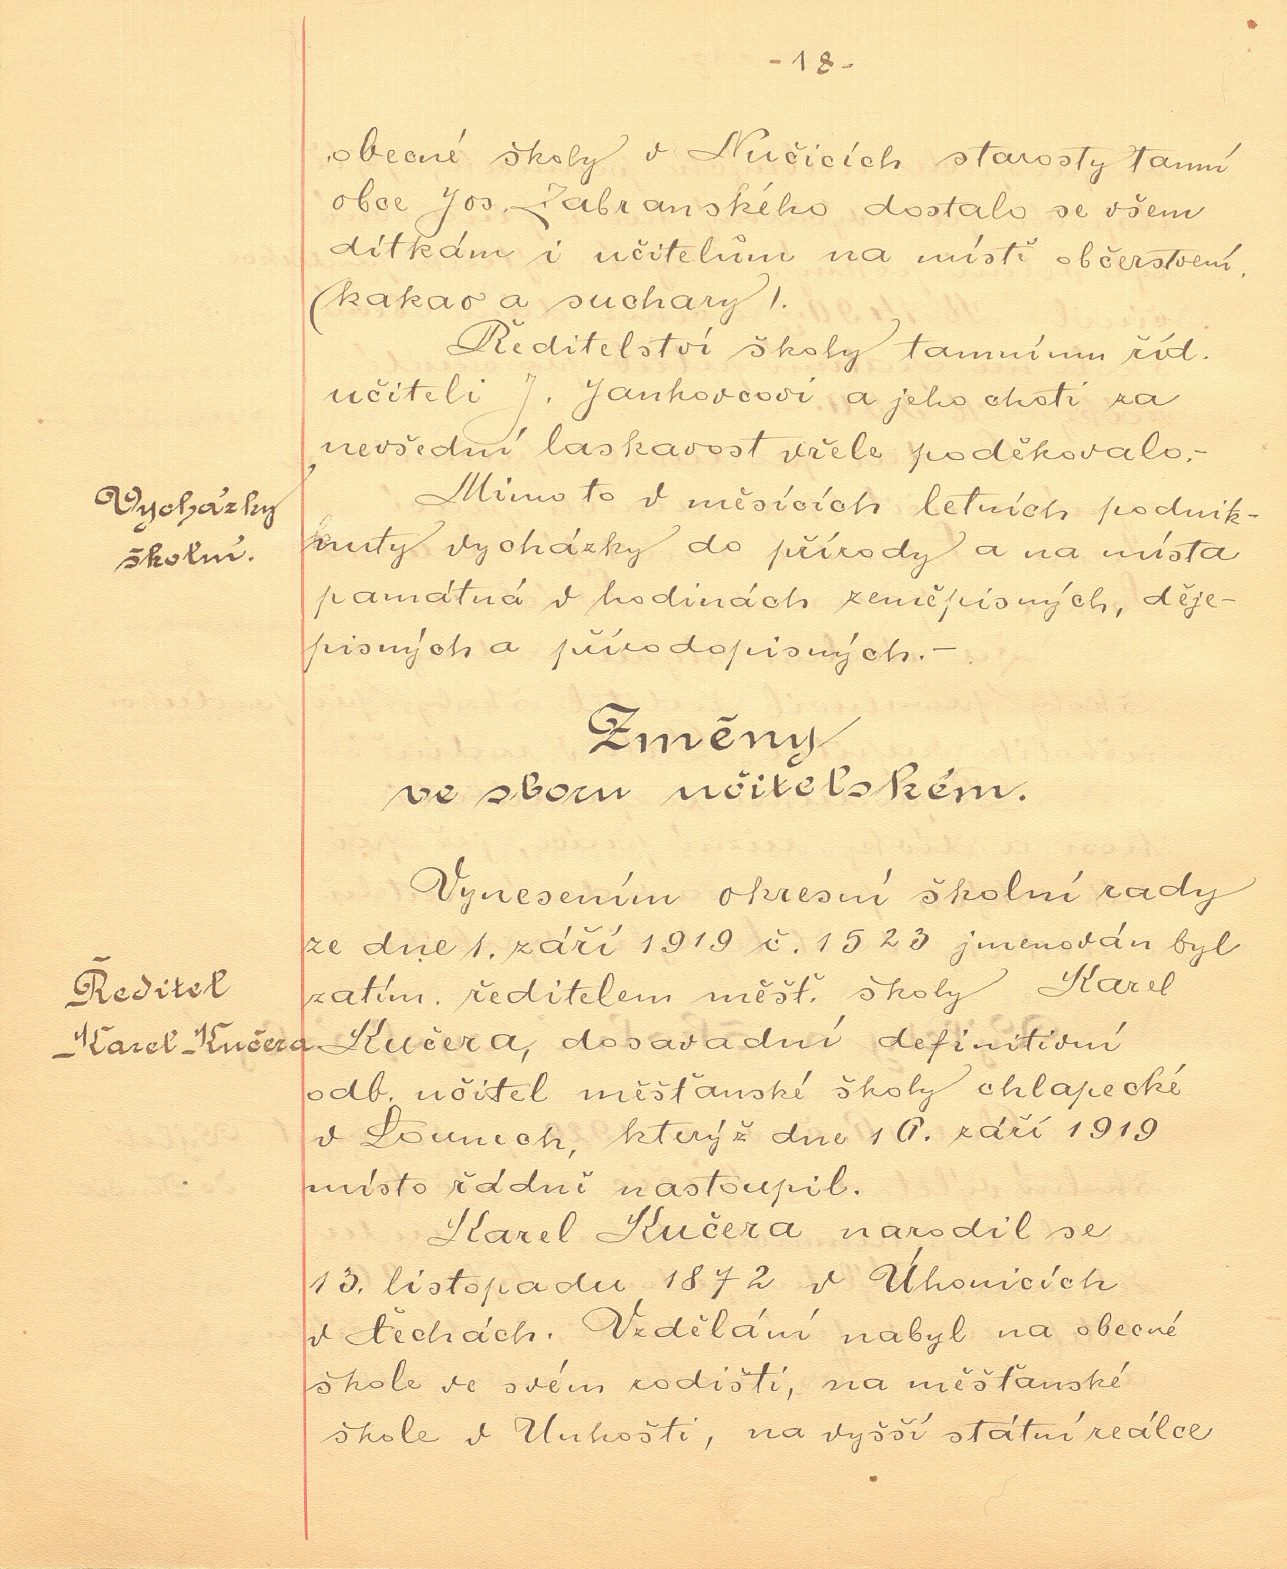 - 18 -
obecné školy v Nučicích starosty tamní
obce Jos. Zabranského dostalo se všem
dítkám i učitelům na místě občerstvení,
(kakao a suchary).
Ředitelství školy tamnímu říd.
učiteli J. Jankovcovi a jeho choti za
nevšední laskavost vřele poděkovalo.-
Vycházky
školní.
Mimo to v měsících letních podnik-
nuty vycházky do přírody a na místa
památná v hodinách zeměpisných, děje-
pisných a přírodopisných.-
Změny
ve sboru učitelském.
Vynesením okresní školní rady
ze dne 1. září 1919 č. 1523 jmenován byl
Ředitel
Karel Kučera
zatím. ředitelem měšť. školy Karel
Kučera, dosavadní definitivní
odb. učitel měšťanské školy chlapecké
v Lounech, kterýž dne 16. září 1919
místo řádně nastoupil.
Karel Kučera narodil se
13. listopadu 1872 v Úhonicích
v Čechách. Vzdělání nabyl na obecné
škole ve svém rodišti, na měšťanské
škole v Unhošti, na vyšší státní reálce